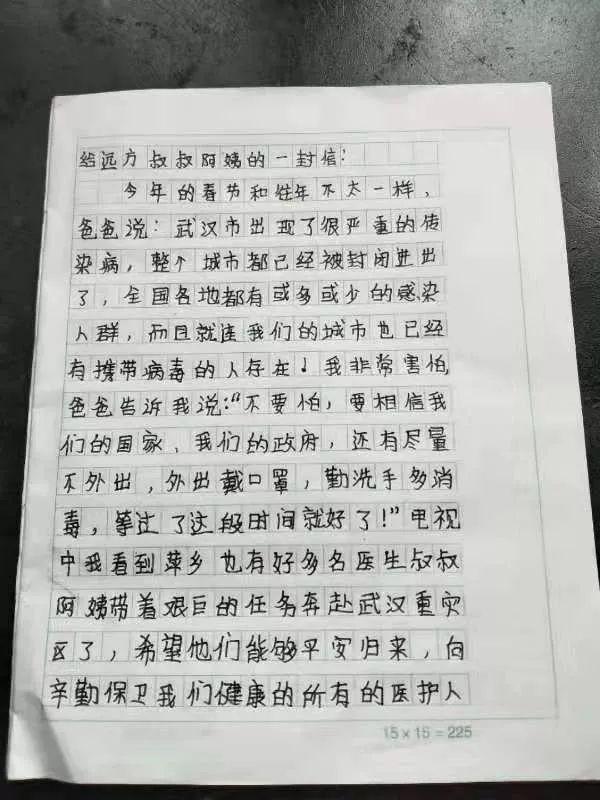 给远方叔叔阿姨的一封信:
今年的春节和往年不太一样,
爸爸说:武汉市出现了很严重的传
染病,整个城市都已经被封闭进出
了,全国各地都有或多或少的感染
人群,而且就连我们的城市也已经
有携带病毒的人存在!我非常害怕
爸爸告诉我说:“不要怕,要相信我
们的国家、我们的政府,还有尽量
不外出,外出戴口罩,勤洗手多消
毒,等过了这段时间就好了!”电视
中我看到萍乡也有好多名医生叔叔
阿姨带着艰巨的任务奔赴武汉重灾
区了,希望他们能够平安归来,向
辛勤保卫我们健康的所有的医护人
15×15=225